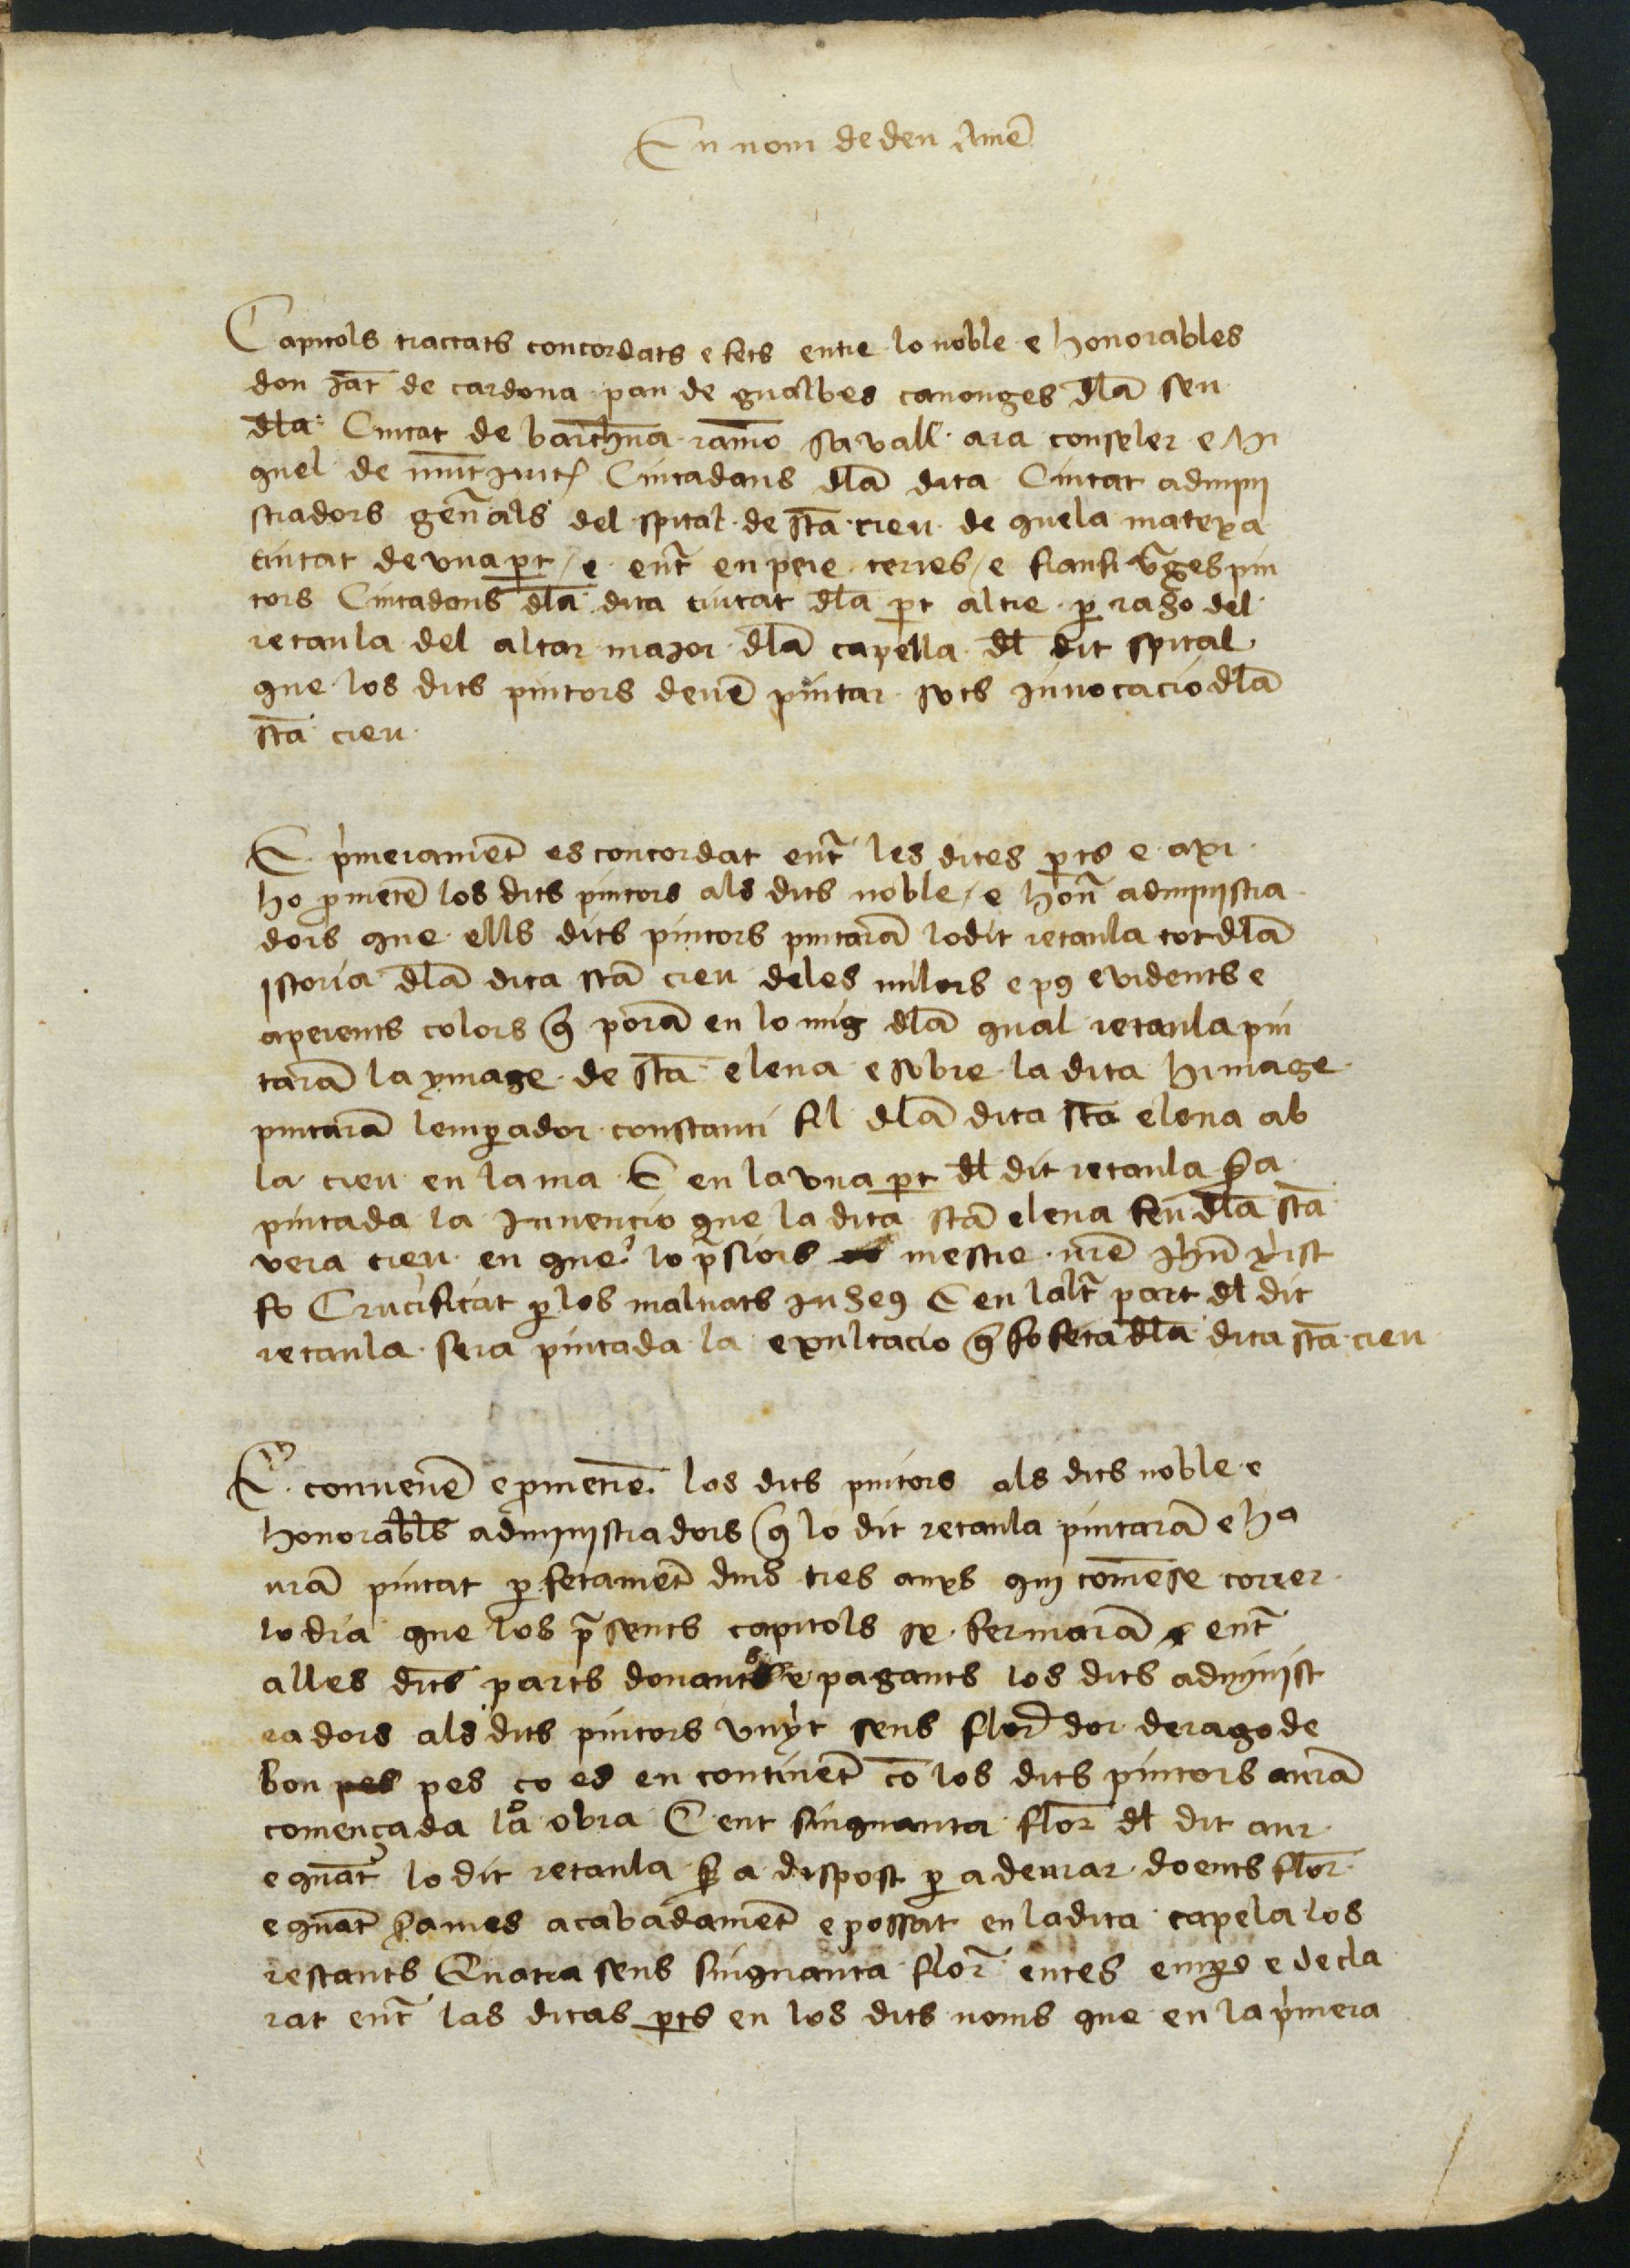 En nom de deu Amē
Capitols tractats concordats e fets entre lo noble e honorables
don Jāt de cardona pau de gualbes canonges dl̄a seu
dl̄a Ciutat de barch̄na ramō savall ara conseler e Mi
quel de mūtjuich Ciutadans dl̄a dita Ciutat admini
stradors gen̄als del spital de sc̄ta creu de quela matexa
ciutat de una pt / e ent̄ en pere terres / e fransi v̄ges pin
tors Ciutadans dl̄a dita ciutat dl̄a pt altre p raho del
retaula del altar major dl̄a capella dl̄ dit spital
que los dits pintors deuē pintar sots invocacio dl̄a
st̄a creu
E pͥmeramēt es concordat ent̄ les dites pts e axi
ho pmetē los dits pintors als dits noble / e hon̄ administra
dors que ells dits pintors pintarā lo dit retaula tot dl̄a
istoria dl̄a dita stā creu deles milors e pꝰ evidents e
aperents colors q̄ porā en lo mig dl̄a qual retaula pin
tarā la ymage de stā elena e sobre la dita himage
pintarā lempador constanti fil dl̄a dita st̄a elena ab
la creu en la ma E en la una pt dl̄ dit retaula s̄a
pintada la Invencio que la dita stā elena feu dl̄a stā
vera creu en que lo p̄sios mestre nrē Jhū xͥst
fo Crucificat p los malvats juheꝰ E en lalt̄ part dl̄ dit
retaula sera pintada la exultacio q̄ fo feta dl̄a dita stā creu
E convenē e pmetrē los dits pintors als dits noble e
honorabl̄s administradors q̄ lo dit retaula pintarā e ha
urā pintat pfetamēt dins tres anys qui comēse correr
lo dia que los p̄sents capitols se fermarā ent̄
alles dits parts donants e pagants los dits administ
radors als dits pintors vuyt sens flor̄ dor darago de
bon pes pes ço es en continēt cō los dits pintors aurā
començada la obra Cent sinquanta flor̄ dl̄ dit aur
e quāt lo dit retaula s̄a dispost p a deurar doents flor̄
e quāt s̄a mes acabadamēt e possat en la dita capela los
restants Quatra sens sinquanta flor̄ entes empo e decla
rat ent̄ las ditas pts en los dits noms que en la pͥmera